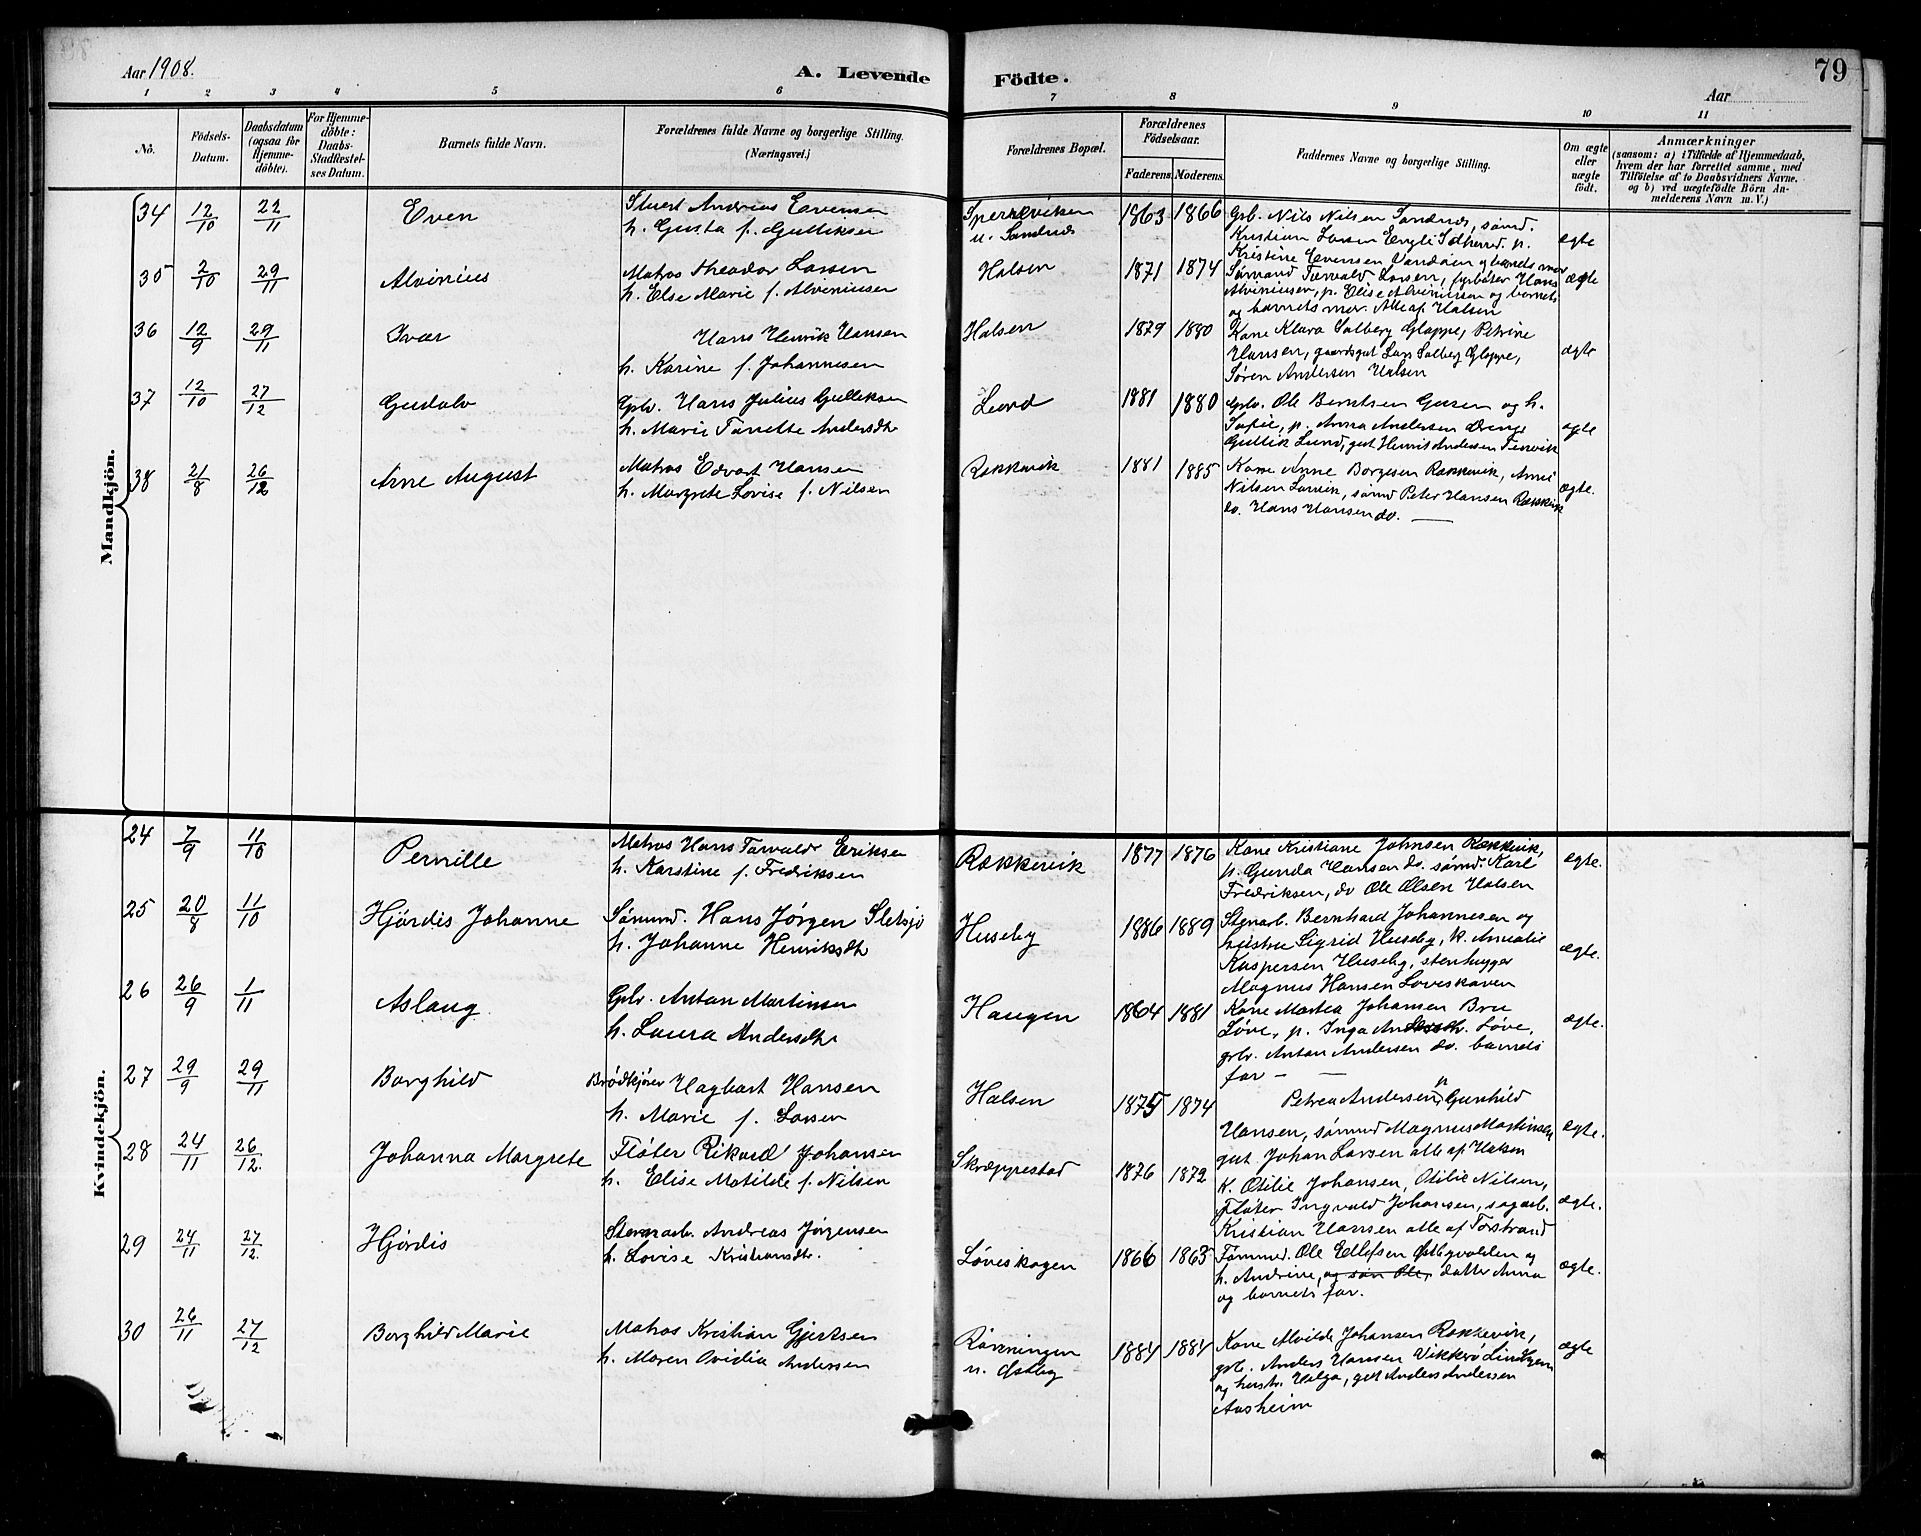 Aar 1908.
A. Levende Födte.
79
Aar
1 2 3 4 5 6 7 8 9 10 11
No.
Födsels-Datum.
Daabsdatum (ogsaa for Hjemme-döbte).
For Hjemme-döbte: Daabs-Stadfæstel-ses Datum.
Barnets fulde Navn.
Forældrenes fulde Navne og borgerlige Stilling. (Næringsvei.)
Forældrenes Bopæl.
Forældrenes Födselsaar.
Faderens. Moderens.
Faddernes Navne og borgerlige Stilling.
Om ægte eller uægte födt.
Anmærkninger
(saasom: a) i Tilfælde af Hjemmedaab, hvem der har forrettet samme, med Tilföielse af to Daabsvidners Navne. og b) ved uægtefödte Börn An-melderens Navn m. V.)
Mandkjön.
34 12/10 22/11 Even
Stuert Andreas Evensen
h. Gusta f. Gulliksen
Sperreviken
u. Sandnes
1863 1866
Grb. Nils Nilsen Sandnes, sömd.
Kristian Larsen Engli p.
Kristine Evensen og barnets mor
ægte
35 2/10 29/11 Alvinius
Matros Theodor Larsen
h. Else Marie f. Alveniusen
Halsen
1871 1874
Sømand Torvald Larsen, fyrbøter Hans
Alviniusen, p. Elise Alviniusen og barnets
og barnets mor. Alle af Halsen
ægte
36 12/9 29/11 Ivar
Hans Henrik Hansen
h. Karine f. Johannesen
Halsen
1879 1880
Kone Klara Solberg Gloppe, Petrine
Hansen, gaardsgut Lars Solberg Gloppe,
Søren Andersen Halsen
ægte
37 12/10 27/12 Gudolv
Gplv. Hans Julius Gulliksen
h. Marie Tonette Andersdtr
Lund
1881 1880
Gplv. Ole Berntsen Gusen og h.
Sofie, p. Anna Andersen Dreng
Gullik Lund, gut Henrik Andersen
ægte
38 21/8 26/12 Arne August
Matros Edvart Hansen
h. Margrete Lovise f. Nilsen
Rækkevik
1881 1885
Kone Anne Borgesen Rækkevik, Anne
Nilsen Larvik, sömd Peter Hansen Rækkvik
do. Hans Hansen do. —
ægte.
Kvindekjön.
24 7/9 11/10 Pernille
Matros Hans Torvald Eriksen
h. Karstine f. Fredriksen
Rækkevik
1877 1876
Kone Kristiane Johnsen Rækkvik,
p. Gunda Hansen do. sömd. Karl
Fredriksen, do Ole Olsen Halsen
ægte.
25 20/8 11/10 Hjördis Johanne
Sømand. Hans Jørgen Sletsjø
h. Johanne Henriksdtr
Huseby
1886 1889
Stenarb. Bernhard Johannesen og
hustru Sigrid Huseby, k. Amalie
Kaspersen Huseby, stenhugger
Magnus Hansen Løveskaven
ægte.
26 26/9 1/11 Aslaug
Gplv. Anton Martinsen
h. Laura Andersdtr
Haugen
1864 1881
Kone Martea Johansen Bru
Løve, p. Inga Andersdtr. Løve,
grlv. Anton Andersen do. barnets
far —
ægte.
27 29/9 29/11 Borghild
Brødkjører Hagbart Hansen
h. Marie f. Larsen
Halsen
1875 1874
Petrea Andersen, p Gunhild
Hansen, sømnd Magnus Martinsen
gut. Johan Larsen alle af Halsen
ægte.
28 24/11 26/12. Johanna Margrete
Fløter Rikard Johansen
h. Elise Matilde f. Nilsen
Skræppestad
1876 1872
K. Otilie Johansen, Otilie Nilsen,
Fløter Ingvald Johansen, sagarb.
Kristian Hansen alle af Torstrand
ægte.
29 24/11 27/12. Hjørdis
Stenarb. Andreas Jørgensen
h. Lovise Kristiansdtr.
Løveskogen
1866 1863
Tømmd. Ole Ellefsen Østbyvolden og
h. Andrine, og søn Ole, datter Anna
og barnets far.
ægte.
30 26/11 27/12 Borghild Marie
Matros Kristian Gjertsen
h. Maren Ovidia Andersen
Rønningen
u. Østby
1884 1884
Kone Alvilde Johansen Rækkevik,
grb. Anders Hansen Vikkerø Lindhjem
og hustr. Helga, gut Anders Andersen
Aasheim
ægte